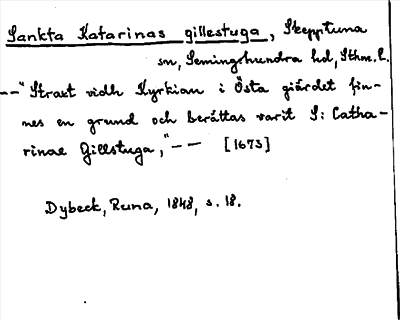 Sankta Katarinas gillestuga, Skepptuna
sn, Seminghundra hd, Sthm. l.
--"Straxt vidh Kyrkian i Östa giärdet fin-
nes en grund och beråttas varit S: Catha-
rinae Gillstuga,"-- [1673]
Dybeck, Runa, 1848, s. 18.